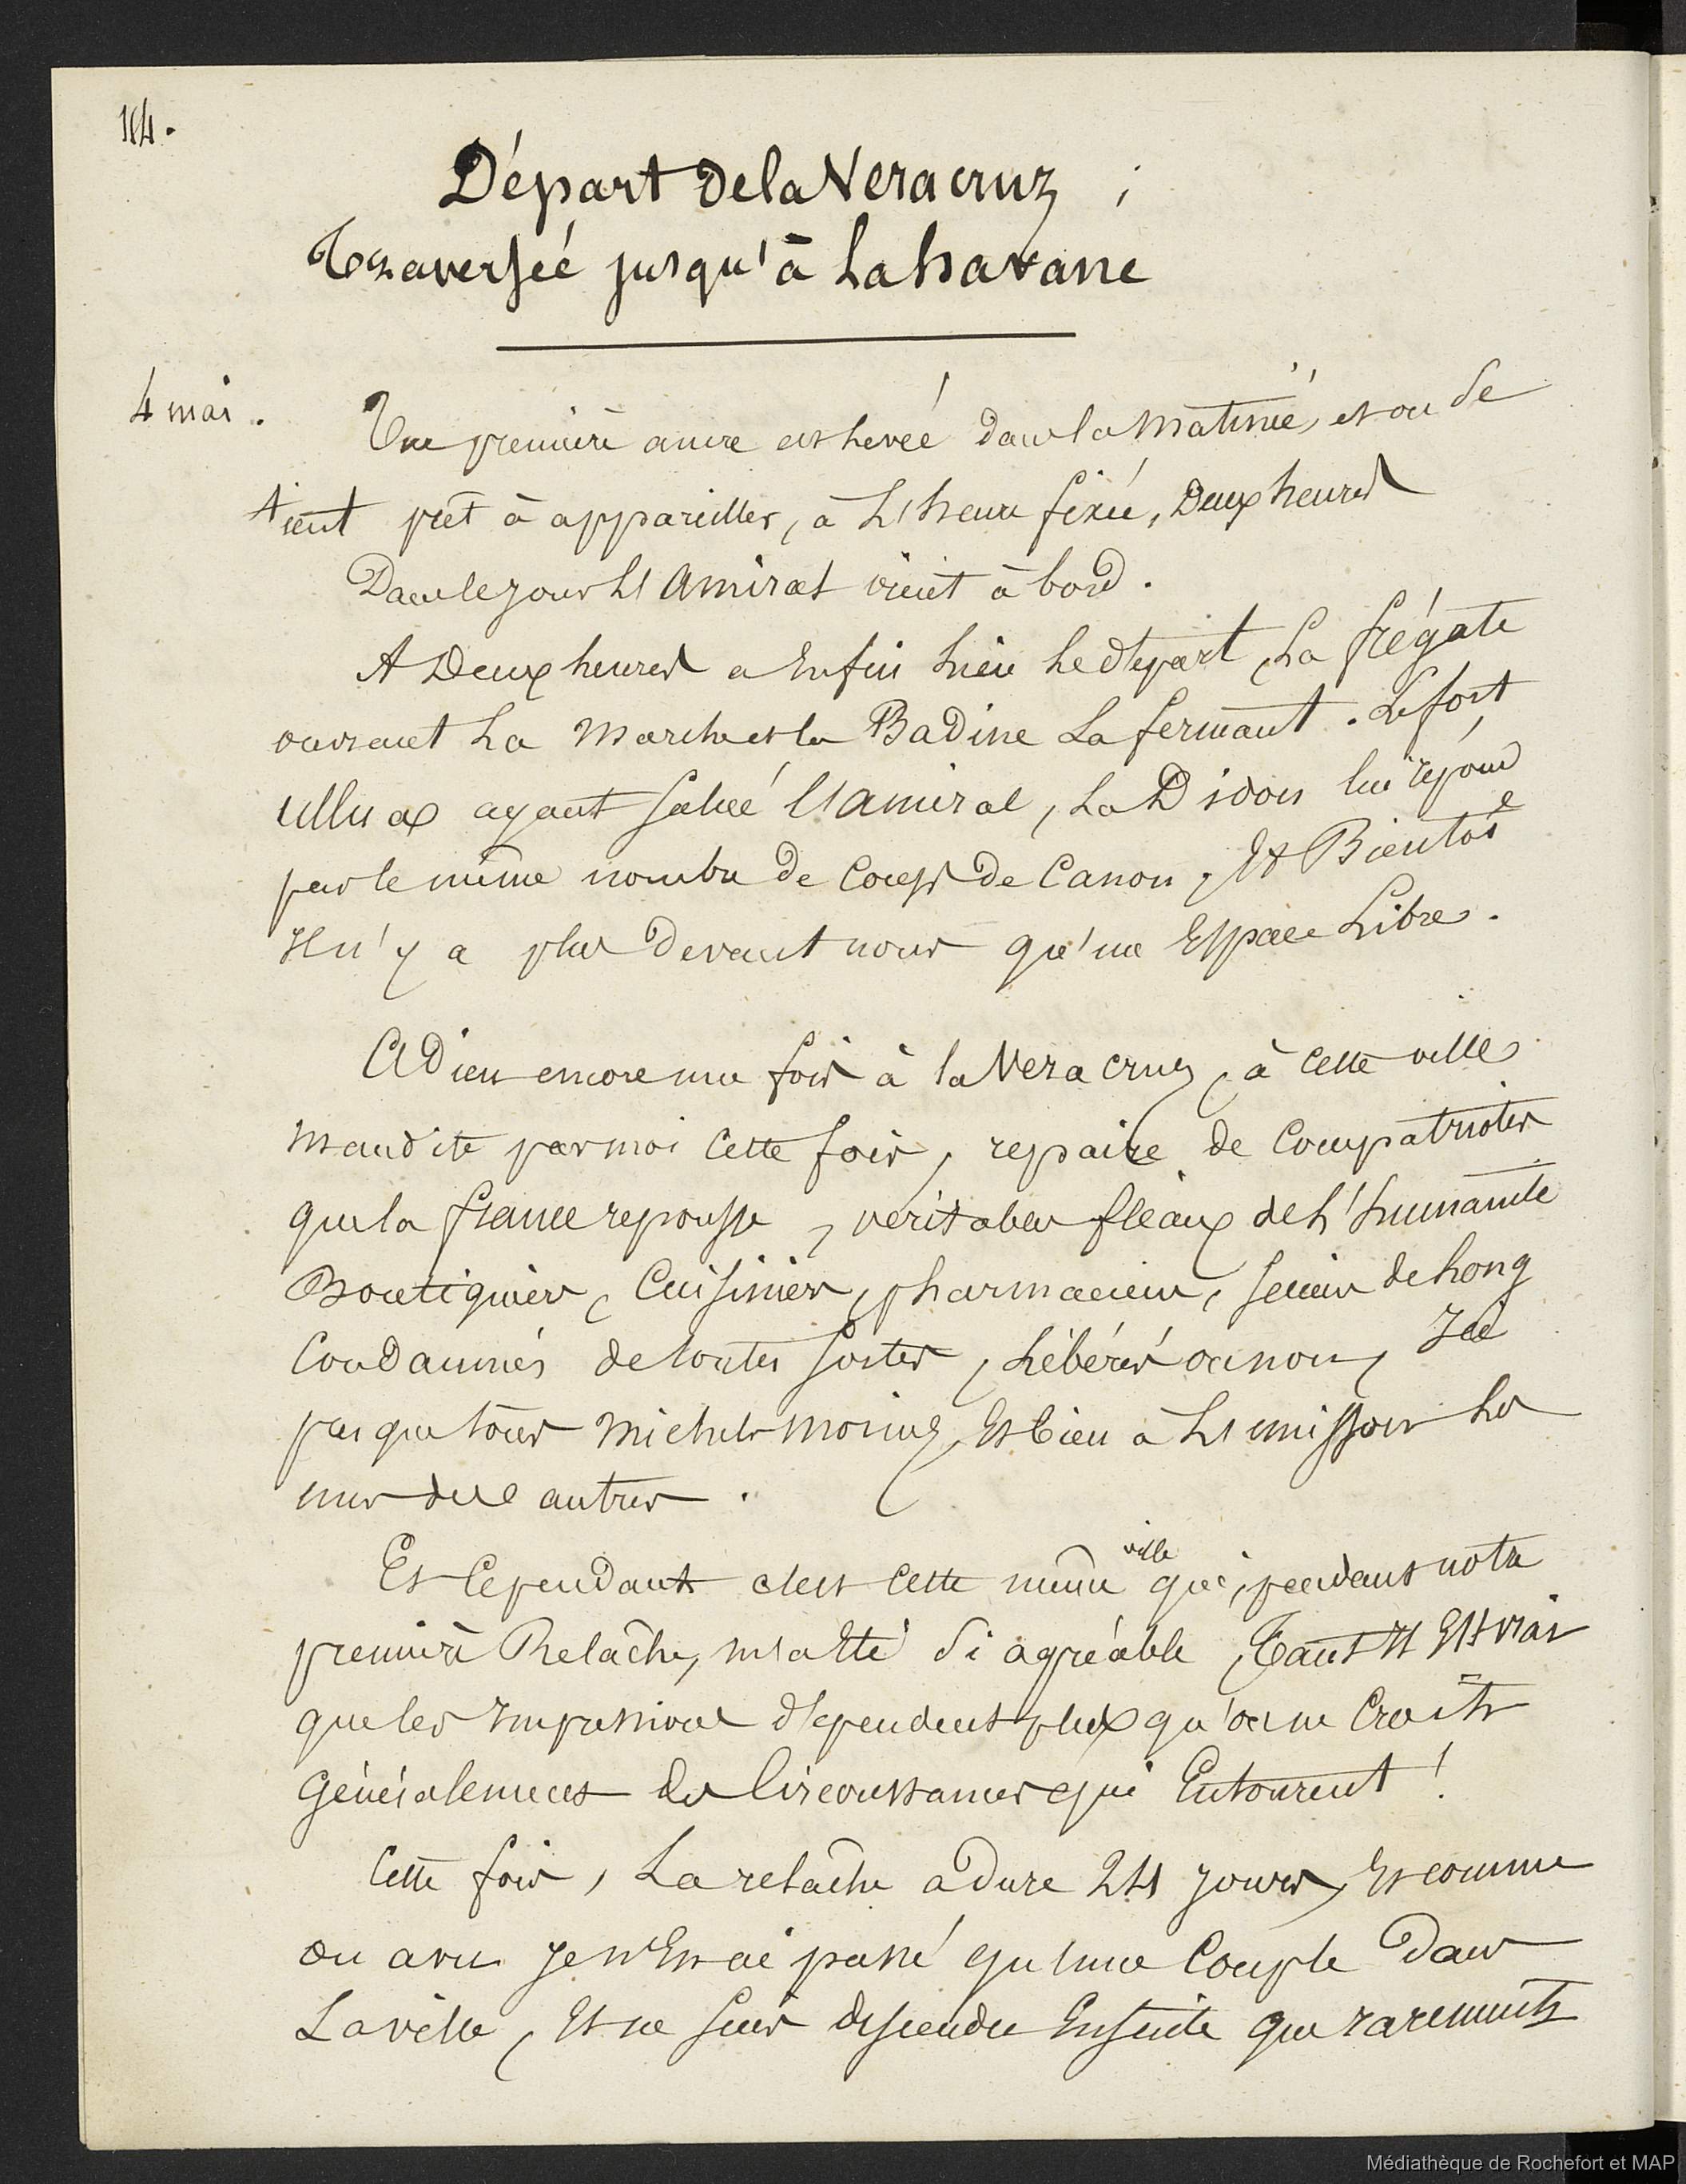 114.
Départ de la Vera cruz ;
Traversée jusqu'à la havane
4 mai. Une première ancre est levée dans la matinée, et on se
tient prêt à appareiller, à l'heure fixée, Deux heures
Dans le jour l'amiral vient à bord.
A Deux heures a enfin lieu le départ, la frégate
ouvrant la marche et la Badine la fermant. Le fort
ulluax ayant salué l'amiral, la Didon lui répond
par le même nombre de coups de canon, Et Bientôt
Il n'y a plus devant nous qu'un Espace Libre.
Adieu encore une fois à la Vera cruz, à cette ville
maudite par moi cette fois, repaire de compatriotes
que la france repousse, véritables fléaux de l'humanité
Boutiquiers, Cuisiniers, pharmaciens, de long
Condamnés de toutes sortes, libérés ou non,
que tous michels morins, Et bien à l'unisson les
uns des autres.
Et Cependant c'est cette même ville qui, pendant notre
première Relâche, m'a été si agréable, Tant Il Est vrai
que les Impressions dépendent plus qu'on ne Croit
Généralement des Circonstances qui Entourent !
Cette fois, La relâche a duré 24 jours, Et comme
on a vu je n'En ai passé qu'une Couple Dans
La ville, Et ne suis descendu Ensuite que rarement
Médiathèque de Rochefort et MAP